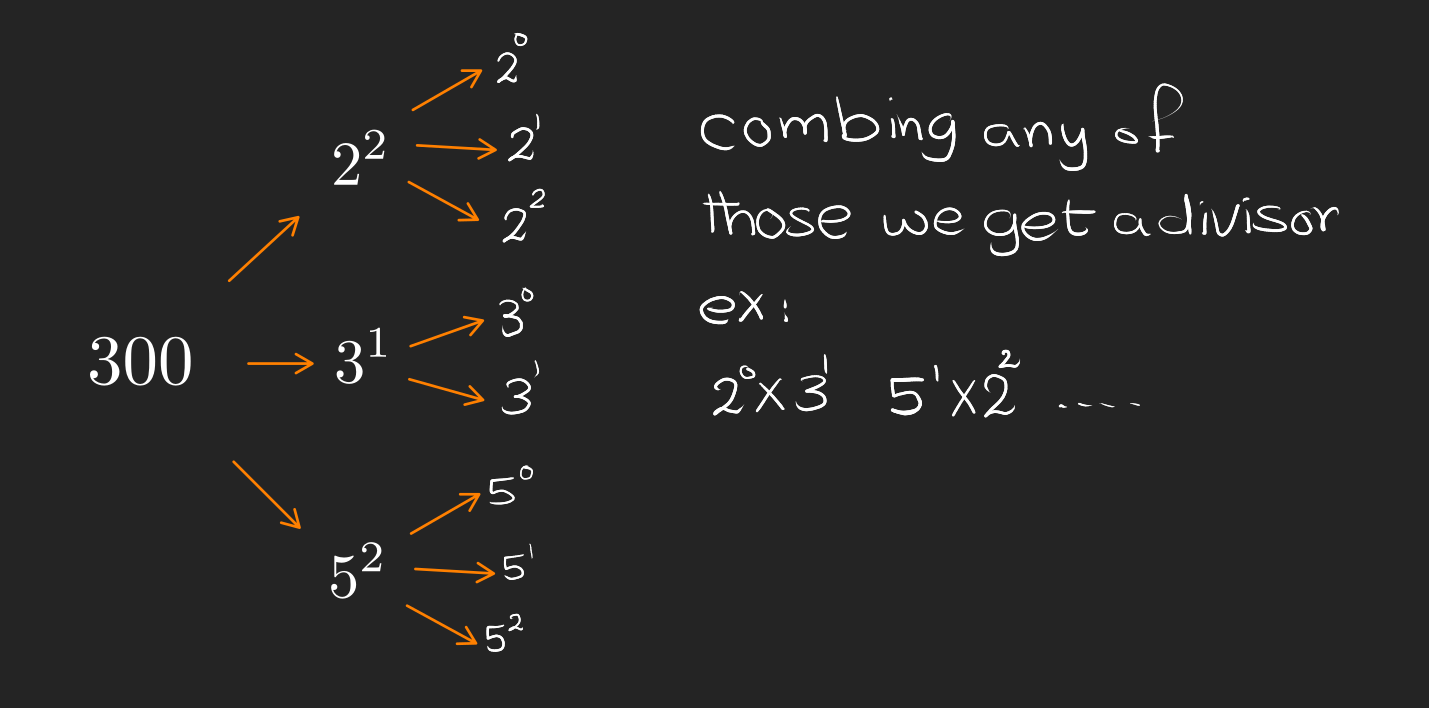 2⁰
2¹
2²
2²
3⁰
300
3¹
3¹
5⁰
5²
5¹
5²
combing any of
those we get a divisor
ex:
2⁰x3¹ 5¹x2² ....